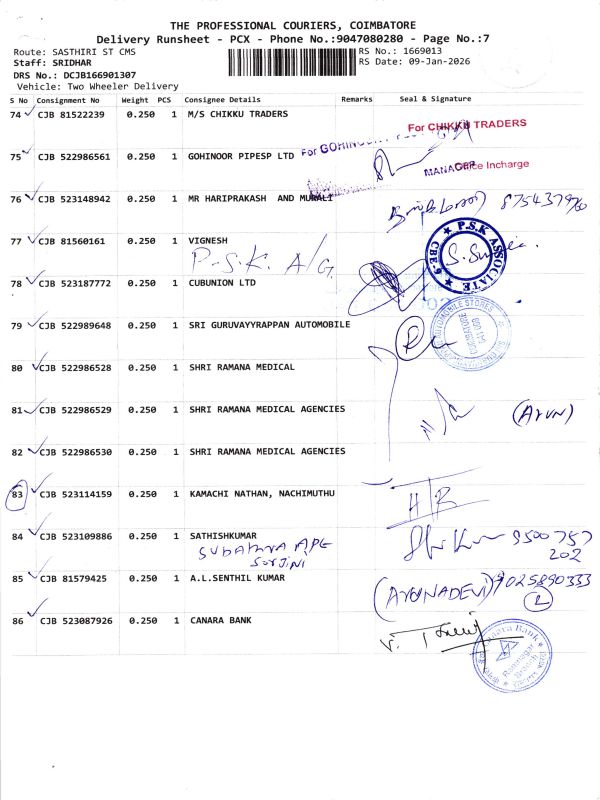 THE PROFESSIONAL COURIERS, COIMBATORE
Delivery Runsheet - PCX - Phone No.:9047080280 - Page No.:7
Route: SASTHIRI ST CMS
Staff: SRIDHAR
DRS No.: DCJB166901307
Vehicle: Two Wheeler Delivery
RS No.: 1669013
RS Date: 09-Jan-2026
S No Consignment No Weight PCS Consignee Details Remarks Seal & Signature
74 CJB 81522239 0.250 1 M/S CHIKKU TRADERS
For CHIKKU TRADERS
75 CJB 522986561 0.250 1 GOHINOOR PIPESP LTD
For GOHINOOR
MANAGER
Office Incharge
76 CJB 523148942 0.250 1 MR HARIPRAKASH AND MURALI
77 CJB 81560161 0.250 1 VIGNESH
P.S.K. A/G
P.S.K ASSOCIATE
CBE-6
78 CJB 523187772 0.250 1 CUBUNION LTD
79 CJB 522989648 0.250 1 SRI GURUVAYYRAPPAN AUTOMOBILE
AUTOMOBILE STORES
COIMBATORE
641 009
80 CJB 522986528 0.250 1 SHRI RAMANA MEDICAL
81 CJB 522986529 0.250 1 SHRI RAMANA MEDICAL AGENCIES
(ARUN)
82 CJB 522986530 0.250 1 SHRI RAMANA MEDICAL AGENCIES
83 CJB 523114159 0.250 1 KAMACHI NATHAN, NACHIMUTHU
H/R
84 CJB 523109886 0.250 1 SATHISHKUMAR
9500757
202
85 CJB 81579425 0.250 1 A.L.SENTHIL KUMAR
(ARUNADEVI) 9025890333
2
86 CJB 523087926 0.250 1 CANARA BANK
Canara Bank
Ramnagar
Branch